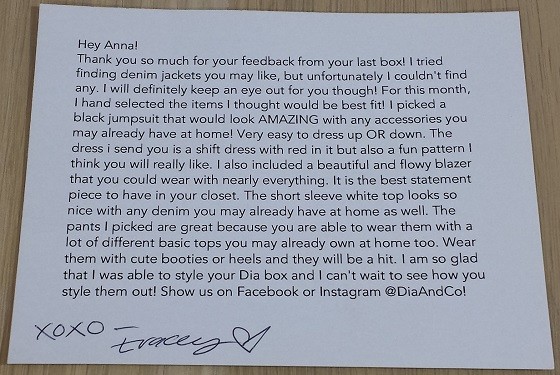 Hey Anna!
Thank you so much for your feedback from your last box! I tried
finding denim jackets you may like, but unfortunately I couldn't find
any. I will definitely keep an eye out for you though! For this month,
I hand selected the items I thought would be best fit! I picked a
black jumpsuit that would look AMAZING with any accessories you
may already have at home! Very easy to dress up OR down. The
dress i send you is a shift dress with red in it but also a fun pattern I
think you will really like. I also included a beautiful and flowy blazer
that you could wear with nearly everything. It is the best statement
piece to have in your closet. The short sleeve white top looks so
nice with any denim you may already have at home as well. The
pants I picked are great because you are able to wear them with a
lot of different basic tops you may already own at home too. Wear
them with cute booties or heels and they will be a hit. I am so glad
that I was able to style your Dia box and I can't wait to see how you
style them out! Show us on Facebook or Instagram @DiaAndCo!
XOXO - Tracey